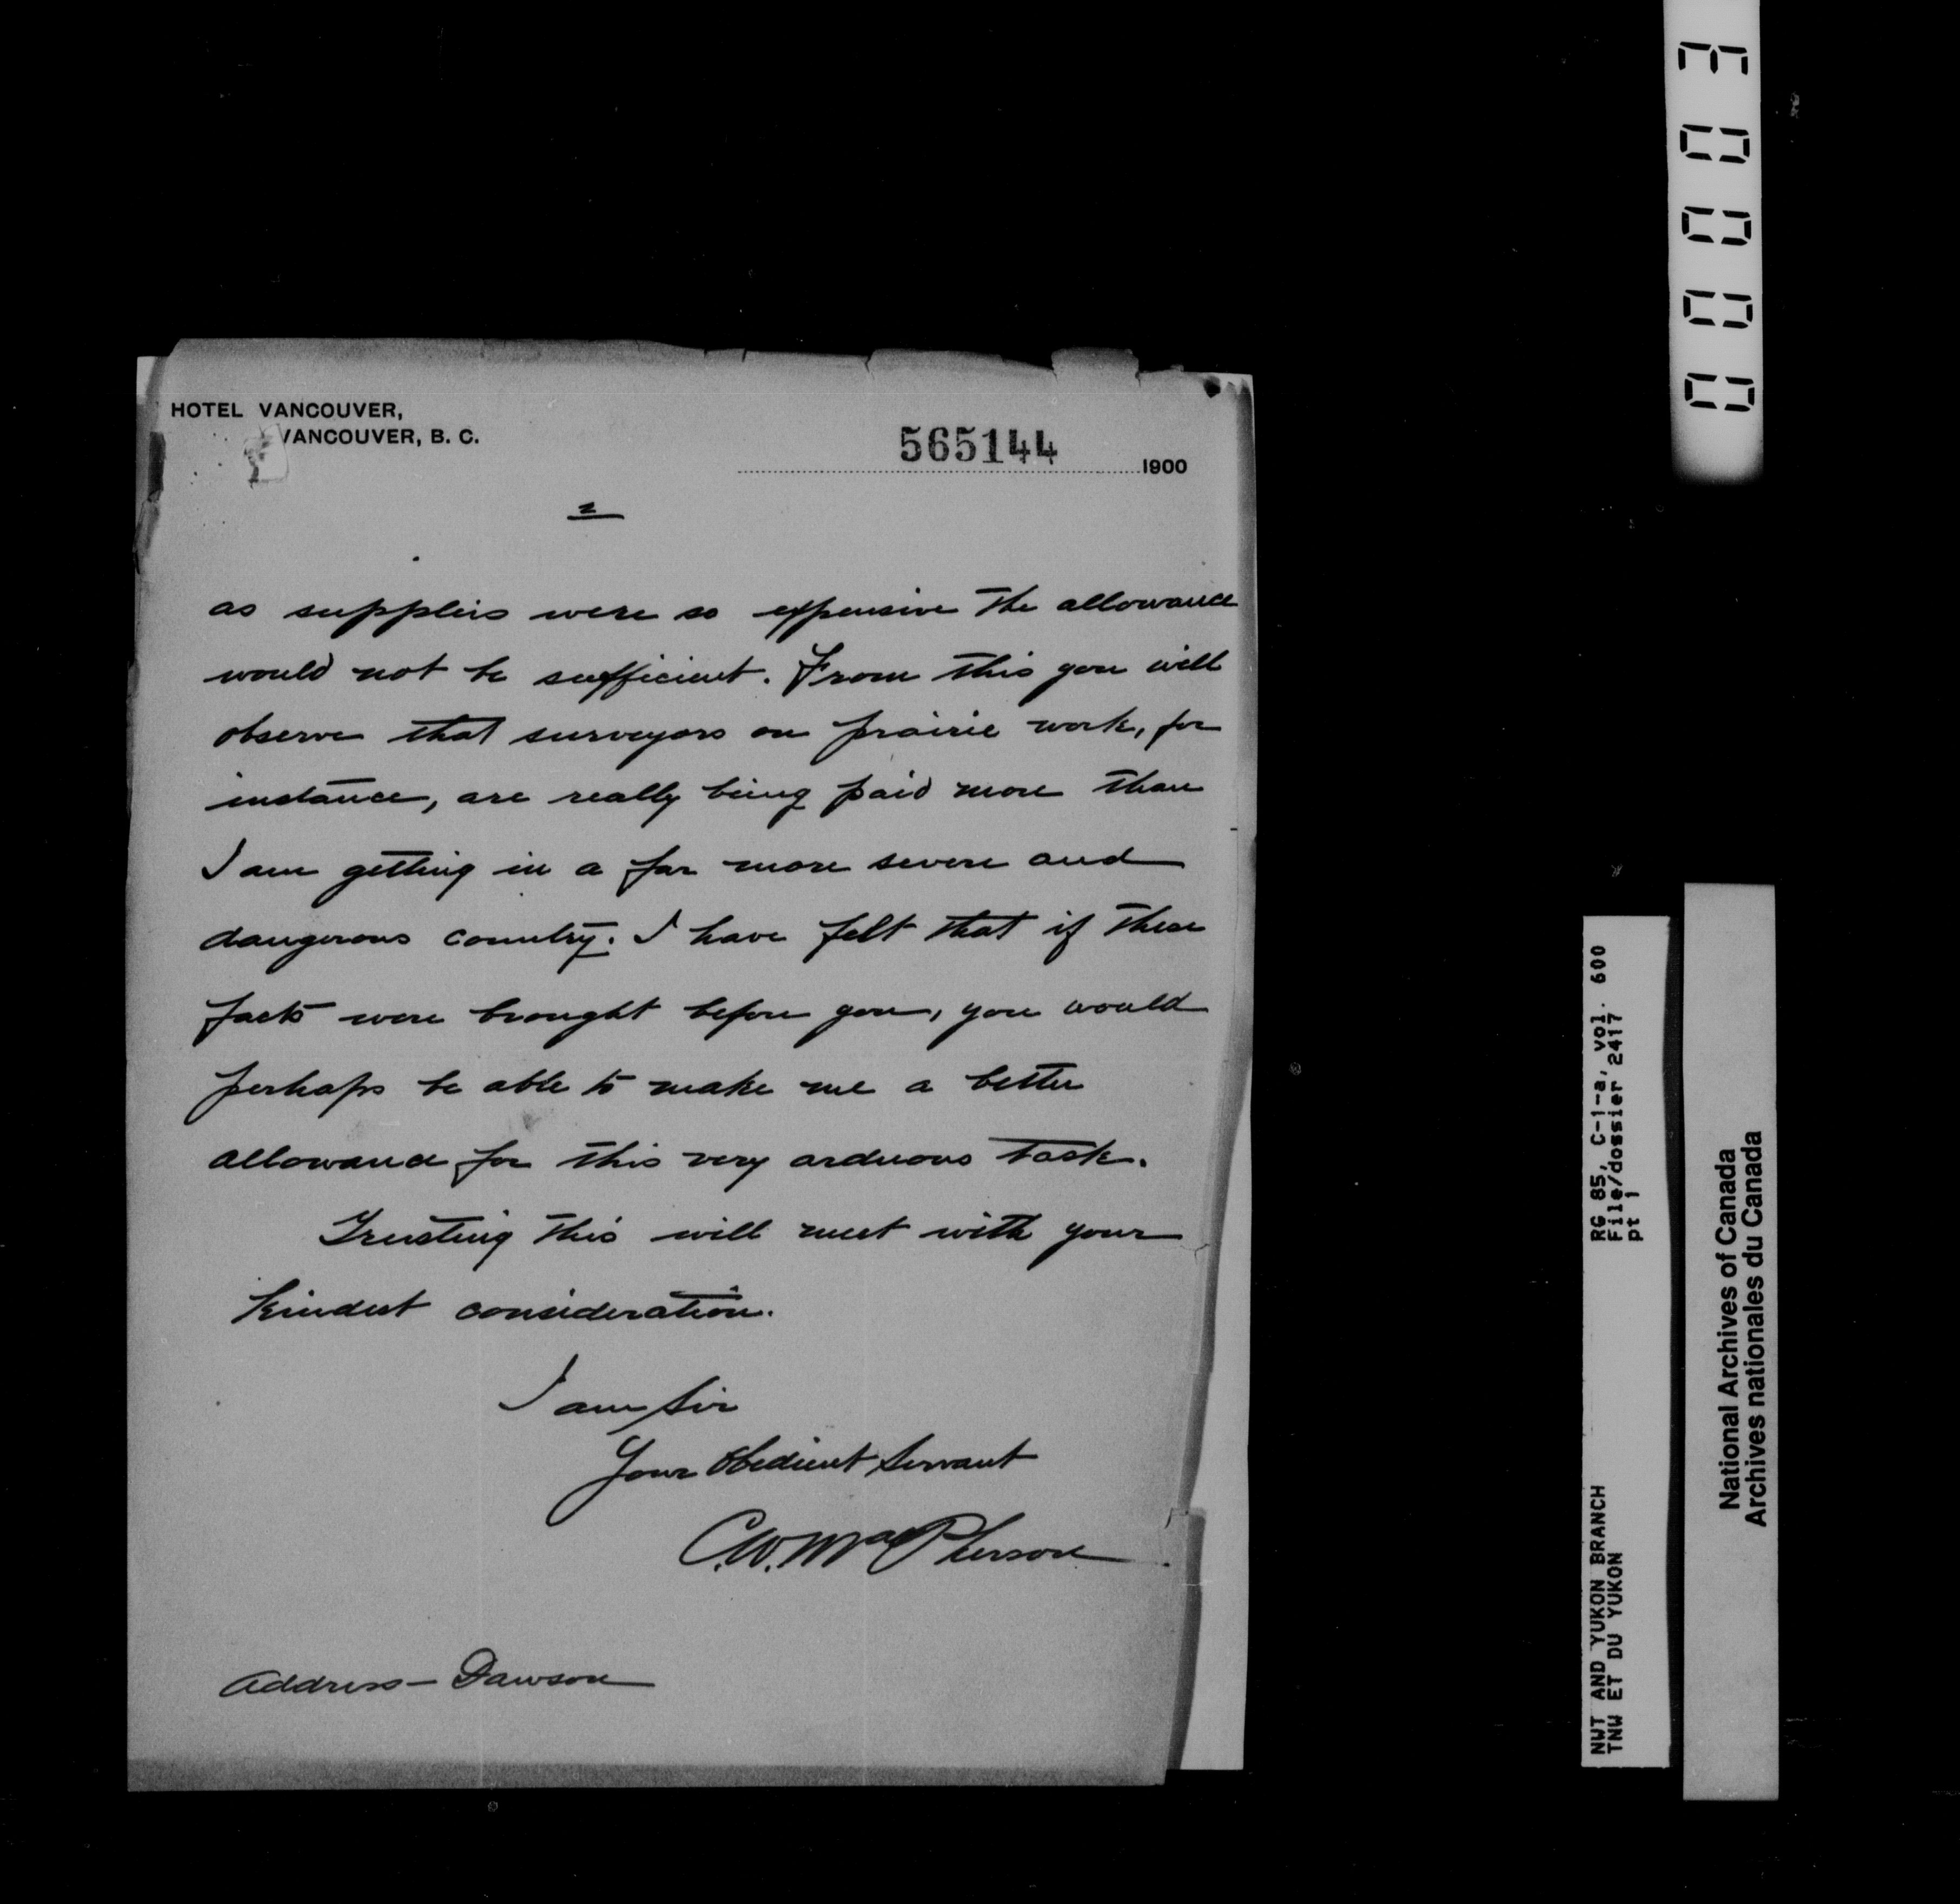 HOTEL VANCOUVER,
VANCOUVER, B. C.
565144
1900
2
as supplies were so expensive the allowance
would not be sufficient. From this you will
observe that surveyors on prairie work, for
instance, are really being paid more than
I am getting in a far more severe and
dangerous country. I have felt that if these
facts were brought before you, you would
perhaps be able to make me a better
allowance for this very arduous task.
Trusting this will meet with your
kindest consideration.
I am Sir
Your Obedient Servant
C.W. MacPherson
Address – Dawson
RG 85, C-1-a, vol. 600
File/dossier 2417
pt 1
NWT AND YUKON BRANCH
TNW ET DU YUKON
National Archives of Canada
Archives nationales du Canada